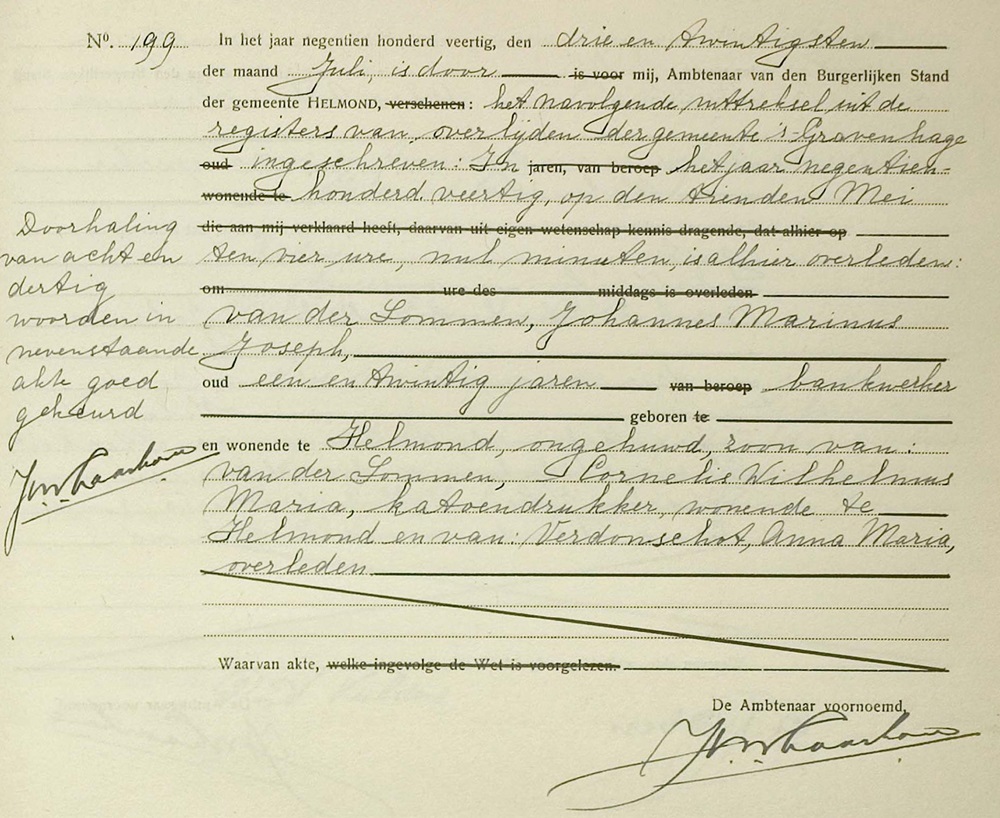 Nº. 199 In het jaar negentien honderd veertig, den drie en twintigsten
der maand Juli, is door is voor mij, Ambtenaar van den Burgerlijken Stand
der gemeente HELMOND, verschenen: het navolgende uittreksel uit de
registers van overlijden der gemeente 's-Gravenhage
oud ingeschreven: In jaren, van beroep het jaar negentien-
wonende te honderd veertig, op den tienden Mei
die aan mij verklaard heeft, daarvan uit eigen wetenschap kennis dragende, dat alhier op
ten vier ure, nul minuten, is alhier overleden:
om ure des middags is overleden
van der Lommen, Johannes Marinus
Joseph,
oud een en twintig jaren van beroep bankwerker
geboren te
en wonende te Helmond, ongehuwd, zoon van:
van der Lommen, Cornelis Wilhelmus
Maria, katoendrukker, wonende te
Helmond en van: Verdonschot, Anna Maria,
overleden
Waarvan akte, welke ingevolge de Wet is voorgelezen.
De Ambtenaar voornoemd,
Doorhaling
van acht en
dertig
woorden in
nevenstaande
akte goed
gekeurd